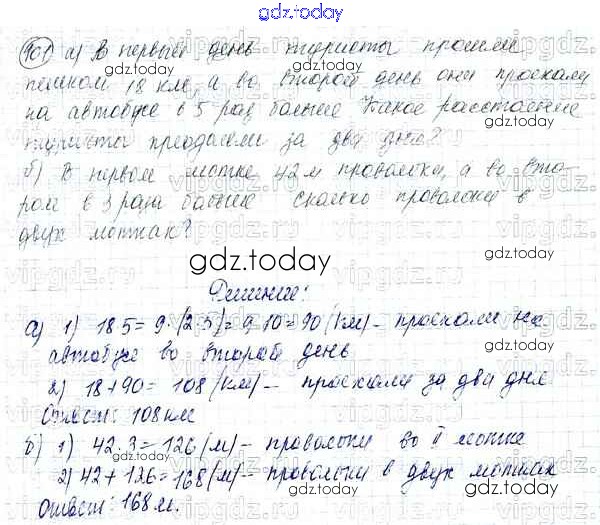 gdz.today
901 а) В первый день туристы прошли
пешком 18 км, а во второй день они проехали
на автобусе в 5 раз больше. Какое расстояние
туристы преодалели за два дня?
б) В первом мотке 42 м проволоки, а во вто-
ром в 3 раза больше сколько проволоки в
двух мотках?
gdz.today
Решение:
а) 1) 18·5= 9·(2·5)= 9·10=90 (км) – проехали на
автобусе во второй день
2) 18+90= 108 (км) – проехали за два дня
Ответ: 108 км
б) 1) 42·3=126 (м) – проволоки во II мотке
2) 42+126=168 (м) – проволоки в двух мотках
Ответ: 168 м.
gdz.today